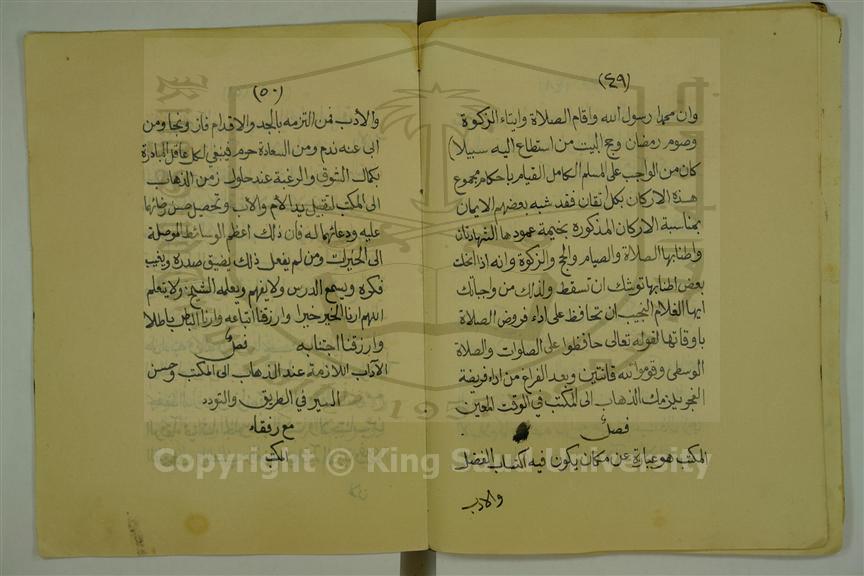 (٤٩)
وان محمدا رسول الله واقام الصلاة وايتاء الزكوة
وصوم رمضان وحج البيت من استطاع اليه سبيلا)
كان من الواجب على المسلم الكامل القيام باحكام مجموع
هذه الاركان بكل اتقان فقد شبه بعضهم الايمان
بمناسبة الاركان المذكورة بخيمة عمودها الشهادتان
واطنابها الصلاة والصيام والحج والزكوة وانه اذا انحلت
بعض اطنابها توشك ان تسقط ولذلك من واجباتك
ايها الغلام النجيب ان تحافظ على اداء فروض الصلاة
باوقاتها لقوله تعالى حافظوا على الصلوات والصلاة
الوسطى وقوموا لله قانتين وبعد الفراغ من اداء فريضة
الفجر يلزمك الذهاب الى المكتب في الوقت المعين
فصل
المكتب هو عبارة عن مكان يكون فيه اكتساب الفضل
والادب
(٥٠)
والادب فمن التزمه بالجد والاقدام فاز ونجا ومن
ابى عنه ندم ومن السعادة حرم فينبغي لكل عاقل المبادرة
بكمال الشوق والرغبة عند حلول زمن الذهاب
الى المكتب لتقبيل يد الام والاب وتحصيل حسن رضائهما
عليه ودعائهما له فان ذلك اعظم الوسائط الموصلة
الى الخيرات ومن لم يفعل ذلك يضيق صدره ويغيب
فكره ويسمع الدرس ولا يفهم ويعلمه الشيخ ولا يتعلم
اللهم ارنا الخير خيرا وارزقنا اتباعه وارنا الباطل باطلا
وارزقنا اجتنابه فصل
الآداب اللازمة عند الذهاب الى المكتب وحسن
السير في الطريق والتودد
مع رفقاء
المكتب
Copyright © King Saud University
1957